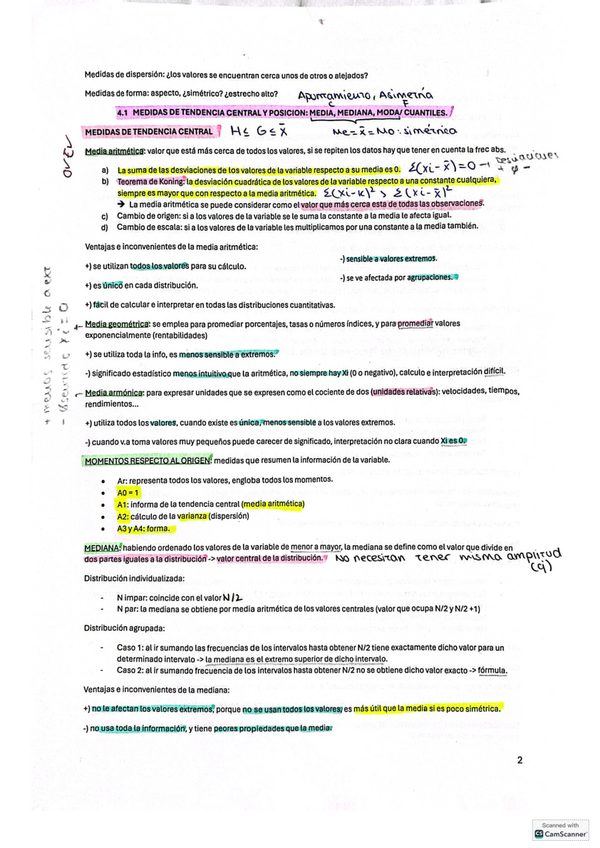 Medidas de dispersión: ¿los valores se encuentran cerca unos de otros o alejados?
Medidas de forma: aspecto, ¿simétrico? ¿estrecho alto? Apuntamiento, Asimetría
C F
4.1 MEDIDAS DE TENDENCIA CENTRAL Y POSICION: MEDIA, MEDIANA, MODA/ CUANTILES.
MEDIDAS DE TENDENCIA CENTRAL H ≤ G ≤ x̄ Me = x̄ = Mo : simétrica
Media aritmética: valor que está más cerca de todos los valores, si se repiten los datos hay que tener en cuenta la frec abs.
a) La suma de las desviaciones de los valores de la variable respecto a su media es 0. Σ(xi - x̄) = 0 → Desviaciones + y -
b) Teorema de Koning: la desviación cuadrática de los valores de la variable respecto a una constante cualquiera,
siempre es mayor que con respecto a la media aritmética. Σ(xi - k)² > Σ(xi - x̄)²
→ La media aritmética se puede considerar como el valor que más cerca esta de todas las observaciones.
c) Cambio de origen: si a los valores de la variable se le suma la constante a la media le afecta igual.
d) Cambio de escala: si a los valores de la variable les multiplicamos por una constante a la media también.
Ventajas e inconvenientes de la media aritmética:
+) se utilizan todos los valores para su cálculo.
-) sensible a valores extremos.
+) es único en cada distribución.
-) se ve afectada por agrupaciones.
+) fácil de calcular e interpretar en todas las distribuciones cuantitativas.
+ menos sensible a ext
Media geométrica: se emplea para promediar porcentajes, tasas o números índices, y para promediar valores
exponencialmente (rentabilidades)
+) se utiliza toda la info, es menos sensible a extremos.
-) significado estadístico menos intuitivo que la aritmética, no siempre hay Xi (0 o negativo), calculo e interpretación difícil.
Media armónica: para expresar unidades que se expresen como el cociente de dos (unidades relativas): velocidades, tiempos,
rendimientos...
+) utiliza todos los valores, cuando existe es única, menos sensible a los valores extremos.
-) cuando v.a toma valores muy pequeños puede carecer de significado, interpretación no clara cuando Xi es 0.
MOMENTOS RESPECTO AL ORIGEN: medidas que resumen la información de la variable.
• Ar: representa todos los valores, engloba todos los momentos.
• A0 = 1
• A1: informa de la tendencia central (media aritmética)
• A2: cálculo de la varianza (dispersión)
• A3 y A4: forma.
MEDIANA: habiendo ordenado los valores de la variable de menor a mayor, la mediana se define como el valor que divide en
dos partes iguales a la distribución -> valor central de la distribución. No necesitan tener misma amplitud
Distribución individualizada:
- N impar: coincide con el valor N/2
- N par: la mediana se obtiene por media aritmética de los valores centrales (valor que ocupa N/2 y N/2 +1)
Distribución agrupada:
- Caso 1: al ir sumando las frecuencias de los intervalos hasta obtener N/2 tiene exactamente dicho valor para un
determinado intervalo -> la mediana es el extremo superior de dicho intervalo.
- Caso 2: al ir sumando frecuencia de los intervalos hasta obtener N/2 no se obtiene dicho valor exacto -> fórmula.
Ventajas e inconvenientes de la mediana:
+) no le afectan los valores extremos, porque no se usan todos los valores, es más útil que la media si es poco simétrica.
-) no usa toda la información, y tiene peores propiedades que la media.
2
Scanned with
CS CamScanner